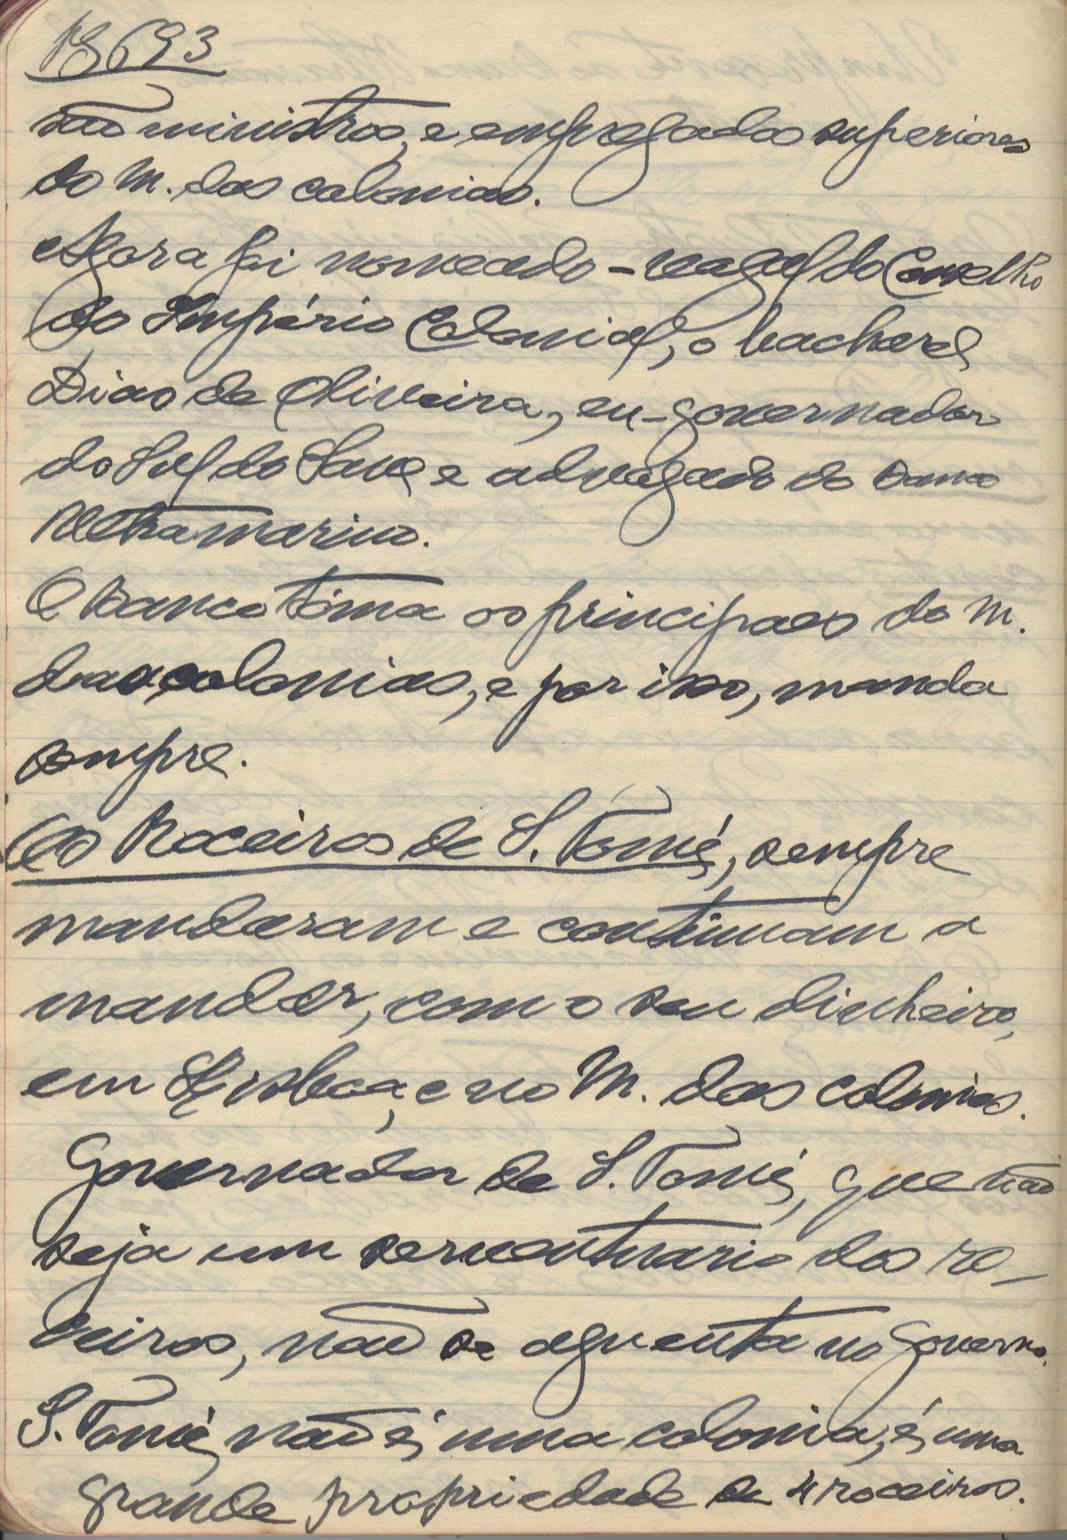 18693
são ministros, e empregados superiores
do M. das colonias.
Agora foi nomeado - vogal do Conselho
do Império Colonial, o bacharel
Dias de Oliveira, ex-governador
do Sul do Save e advogado do Banco
Ultramarino.
O Banco tóma os principaes do M.
das colonias, e por isso, manda
sempre.
Os Roceiros de S. Tomé, sempre
mandaram e continuam a
mandar, com o seu dinheiro,
em Lisboa, e no M. das colonias.
Governador de S. Tomé, que não
seja um serventuario dos ro-
ceiros, não se aguenta no Governo.
S. Tomé, não é, uma colonia, é, uma
grande propriedade de 4 roceiros.